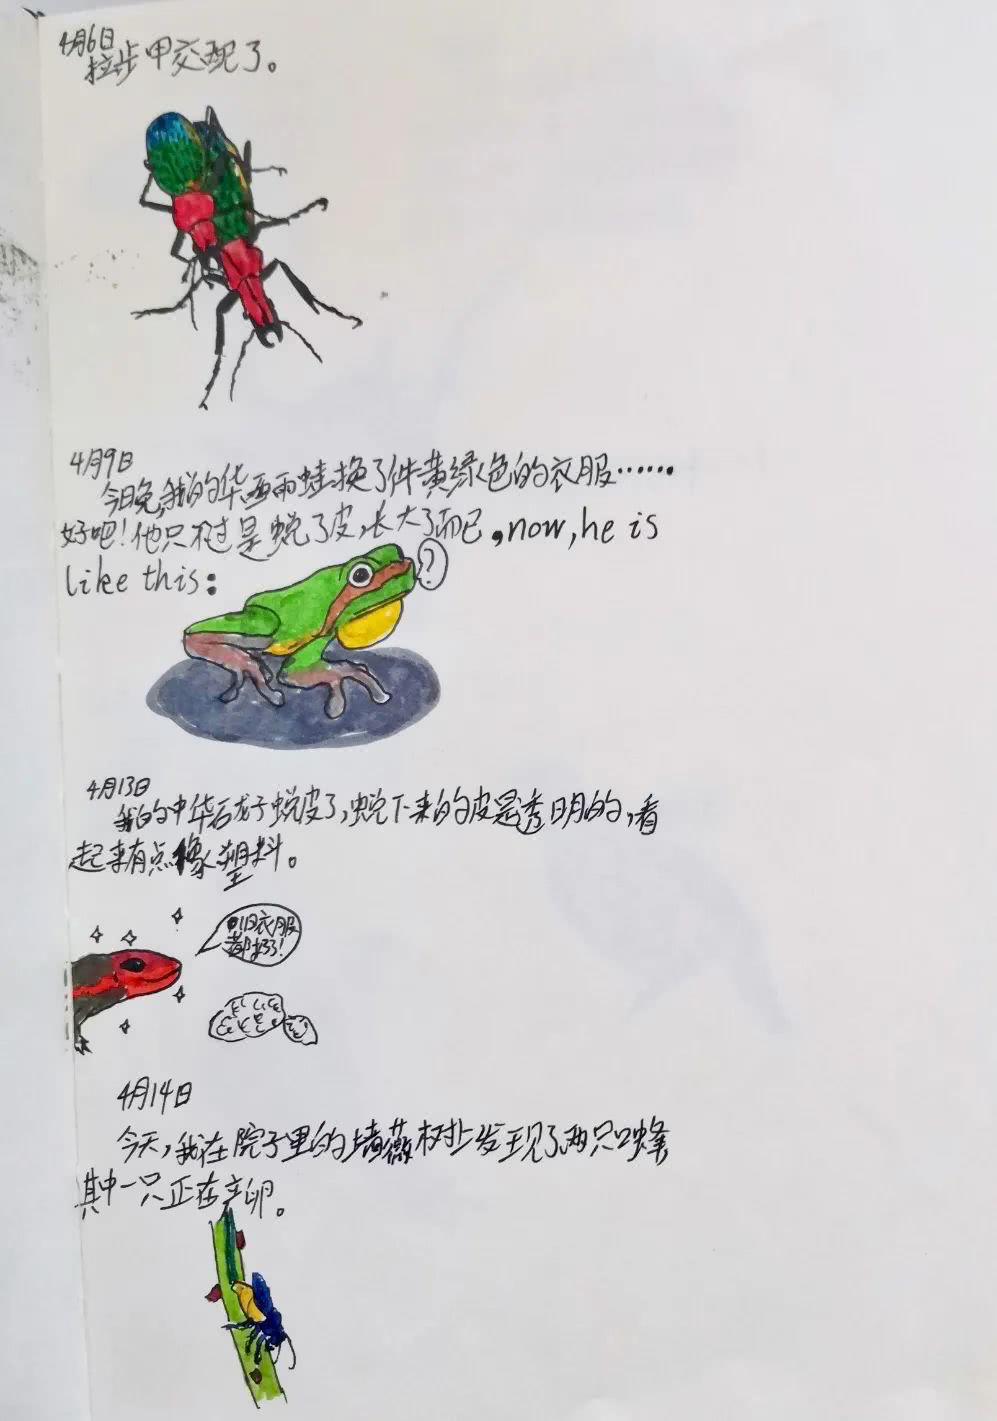 4月6日
拉步甲交配了。
4月9日
今日晚，我的华西雨蛙换了件黄绿色的衣服……
好吧！他只不过是蜕了皮，长大了而已，now, he is
like this：
?
4月13日
我的中华石龙子蜕皮了，蜕下来的皮是透明的，看
起来有点像塑料。
旧衣服
都扔了!
4月14日
今天，我在院子里的墙薇树上发现了两只叶蜂，
其中一只正在产卵。